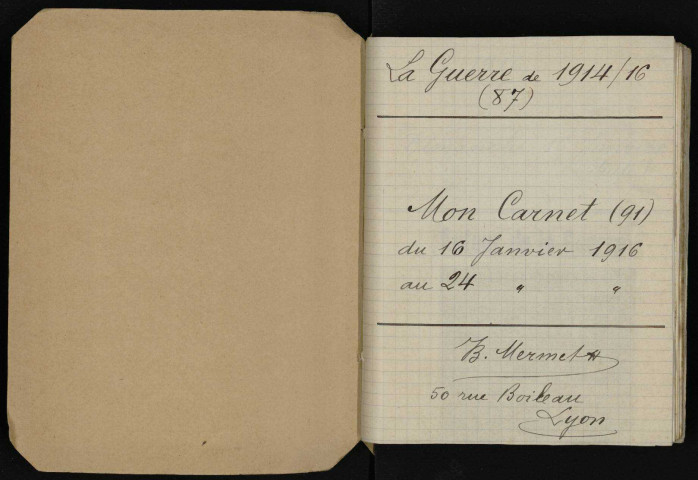 La Guerre de 1914/16
(87)
Mon Carnet (91)
du 16 Janvier 1916
au 24 " "
B. Mermet
50 rue Boileau
Lyon